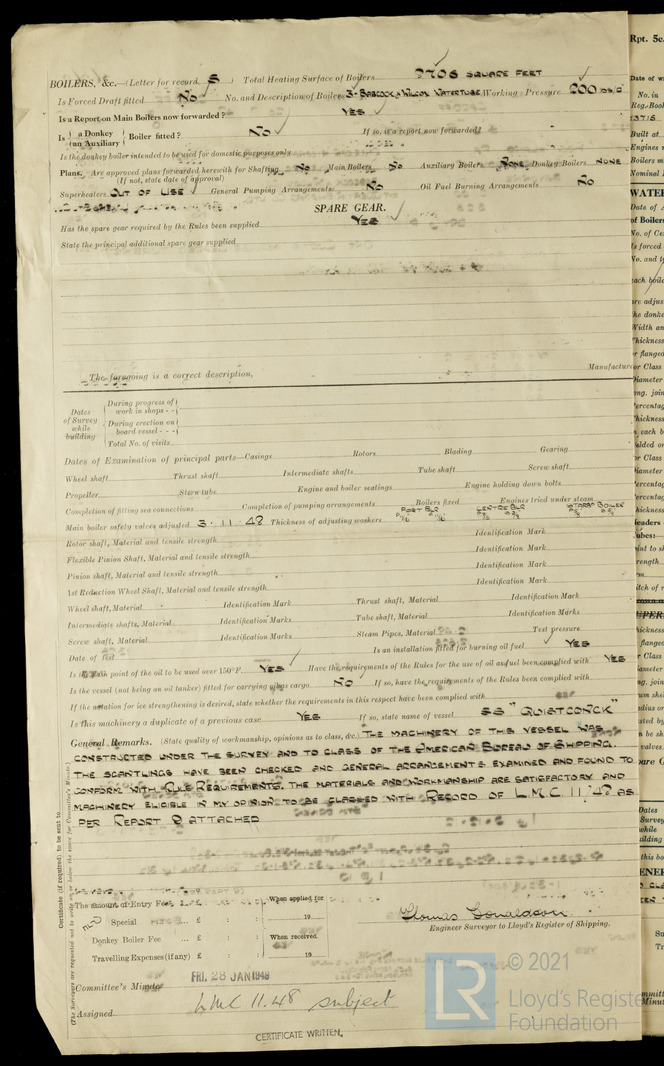 BOILERS, &c.—(Letter for record S ) Total Heating Surface of Boilers 9706 SQUARE FEET
Is Forced Draft fitted No No. and Description of Boilers 3-BABCOCK & WILCOX WATERTUBE Working Pressure 200 lbs/□"
Is a Report on Main Boilers now forwarded? YES
Is {a Donkey / an Auxiliary} Boiler fitted? NO If so, is a report now forwarded?
Is the donkey boiler intended to be used for domestic purposes only
Plans. Are approved plans forwarded herewith for Shafting No Main Boilers No Auxiliary Boilers NONE Donkey Boilers NONE
(If not, state date of approval)
Superheaters OUT OF USE General Pumping Arrangements No Oil Fuel Burning Arrangements No
SPARE GEAR.
Has the spare gear required by the Rules been supplied YES
State the principal additional spare gear supplied
The foregoing is a correct description,
Manufacturer
Dates of Survey while building
During progress of work in shops - -
During erection on board vessel - - -
Total No. of visits
Dates of Examination of principal parts—Casings Rotors Blading Gearing
Wheel shaft Thrust shaft Intermediate shafts Tube shaft Screw shaft
Propeller Stern tube Engine and boiler seatings Engine holding down bolts
Completion of fitting sea connections Completion of pumping arrangements Boilers fixed Engines tried under steam
Main boiler safety valves adjusted 3·11·48 Thickness of adjusting washers PORT BLR CENTRE BLR STARB BOILER
Rotor shaft, Material and tensile strength Identification Mark
Flexible Pinion Shaft, Material and tensile strength Identification Mark
Pinion shaft, Material and tensile strength Identification Mark
1st Reduction Wheel Shaft, Material and tensile strength Identification Mark
Wheel shaft, Material Identification Mark Thrust shaft, Material Identification Mark
Intermediate shafts, Material Identification Marks Tube shaft, Material Identification Marks
Screw shaft, Material Identification Marks Steam Pipes, Material Test pressure
Date of test Is an installation fitted for burning oil fuel YES
Is the flash point of the oil to be used over 150°F. YES Have the requirements of the Rules for the use of oil as fuel been complied with YES
Is the vessel (not being an oil tanker) fitted for carrying oil as cargo No If so, have the requirements of the Rules been complied with
If the notation for ice strengthening is desired, state whether the requirements in this respect have been complied with
Is this machinery a duplicate of a previous case YES If so, state name of vessel SS "QUISTCONCK"
General Remarks. (State quality of workmanship, opinions as to class, &c.) THE MACHINERY OF THIS VESSEL WAS
CONSTRUCTED UNDER THE SURVEY AND TO CLASS OF THE AMERICAN BUREAU OF SHIPPING.
THE SCANTLINGS HAVE BEEN CHECKED AND GENERAL ARRANGEMENTS EXAMINED AND FOUND TO
CONFORM WITH RULE REQUIREMENTS. THE MATERIALS AND WORKMANSHIP ARE SATISFACTORY AND
MACHINERY ELIGIBLE IN MY OPINION TO BE CLASSED WITH RECORD OF L.M.C. 11 '48 AS
PER REPORT 9 ATTACHED
Certificate (if required) to be sent to
(The Surveyors are requested not to write on or below the space for Committee's Minute.)
The amount of Entry Fee .. £ : : When applied for
Special ... £ : : 19
Donkey Boiler Fee ... £ : : When received
Travelling Expenses (if any) £ : : 19
Thomas Donaldson
Engineer Surveyor to Lloyd's Register of Shipping.
FRI. 28 JAN 1949
Committee's Minute
Assigned LMC 11.48 subject
CERTIFICATE WRITTEN.
LR © 2021
Lloyd's Register
Foundation
Rpt. 5c.